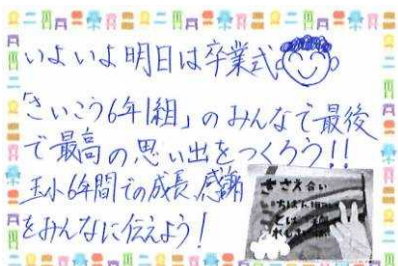 いよいよ明日は卒業式
「さいこう6年1組」のみんなで最後
で最高の思い出をつくろう!!
玉小6年間での成長、感謝
をみんなに伝えよう!
ささえ合い
いちばん
ことば